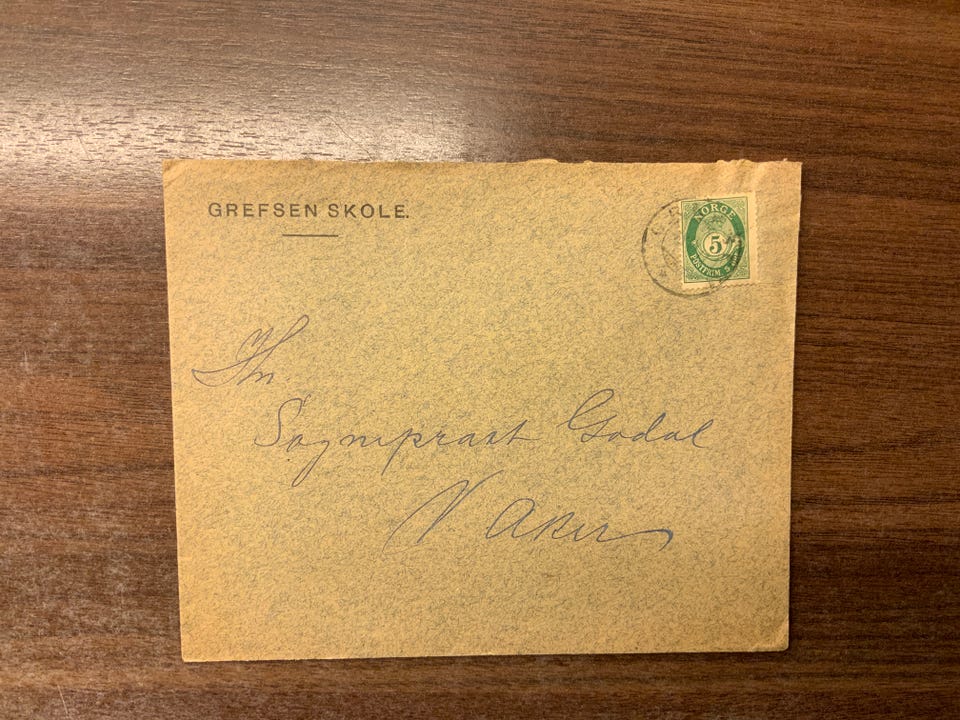 GREFSEN SKOLE.
NORGE
5
POSTFRIM 5
Hr.
Sognepræst Godal
V Aker